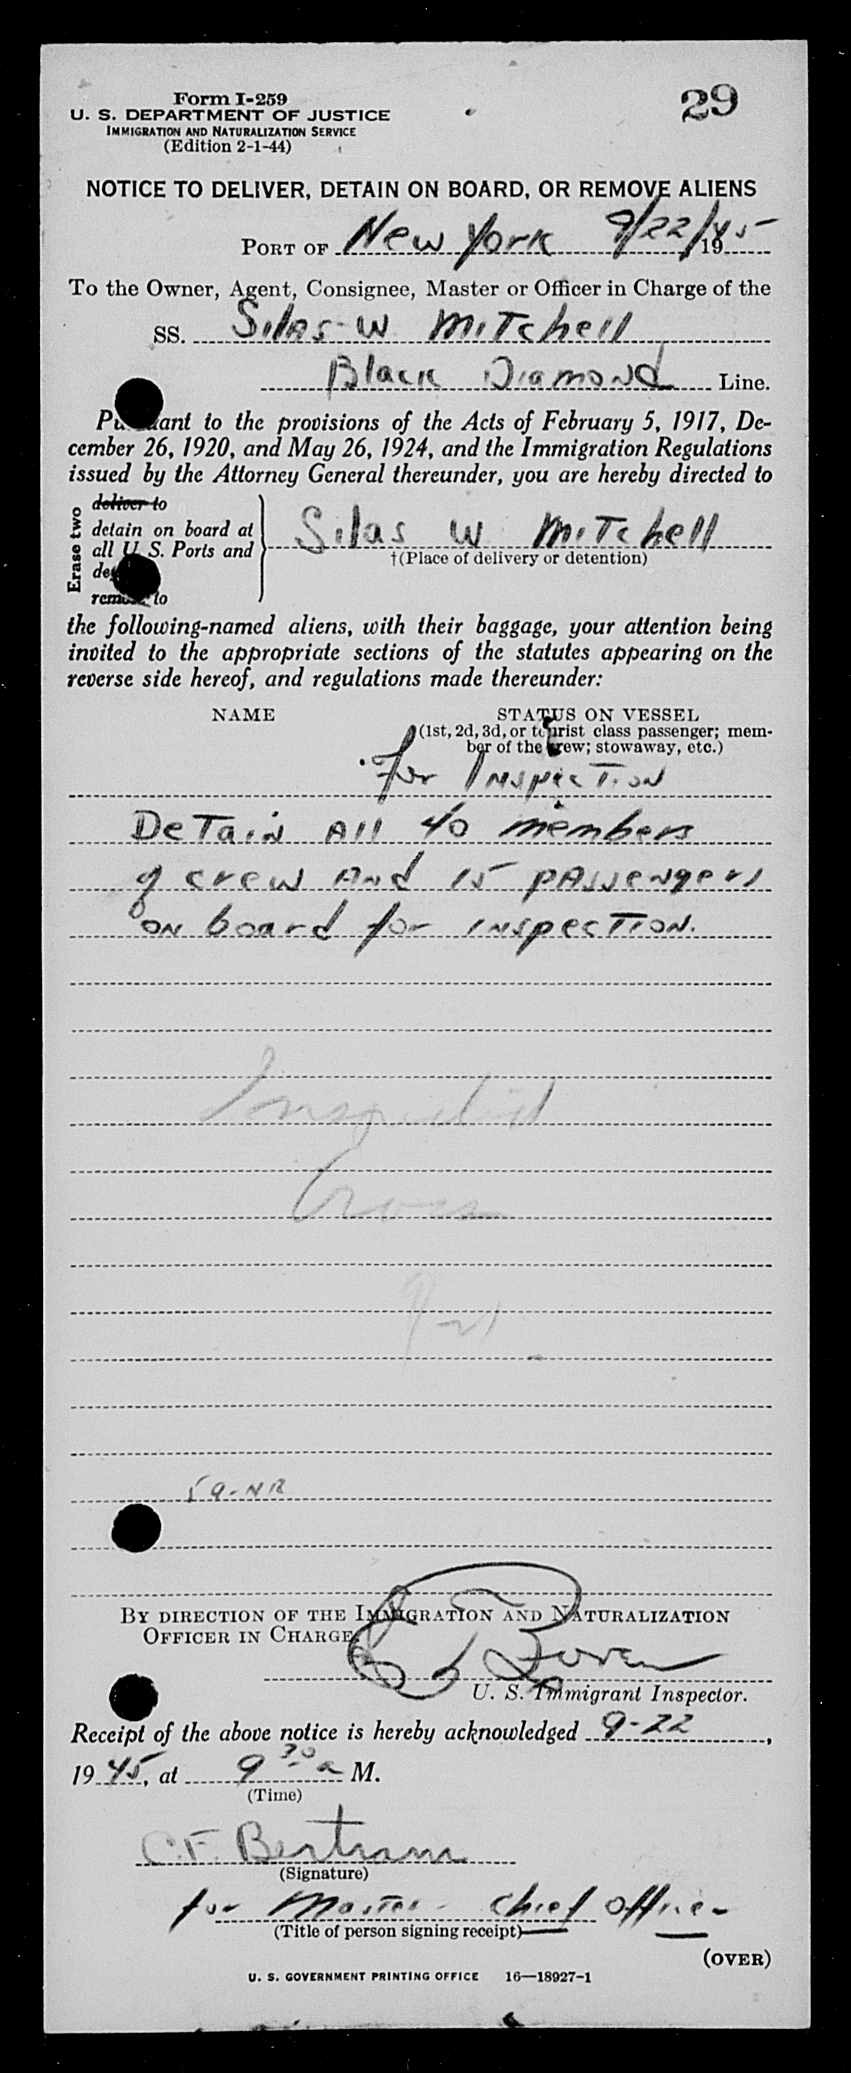 Form I-259
29
U. S. DEPARTMENT OF JUSTICE
IMMIGRATION AND NATURALIZATION SERVICE
(Edition 2-1-44)
NOTICE TO DELIVER, DETAIN ON BOARD, OR REMOVE ALIENS
PORT OF New York 9/22/1945
To the Owner, Agent, Consignee, Master or Officer in Charge of the
SS. Silas W Mitchell
Black Diamond Line.
Pursuant to the provisions of the Acts of February 5, 1917, De-
cember 26, 1920, and May 26, 1924, and the Immigration Regulations
issued by the Attorney General thereunder, you are hereby directed to
Erase two
deliver to
detain on board at
all U. S. Ports and
remove to
Silas W Mitchell
†(Place of delivery or detention)
the following-named aliens, with their baggage, your attention being
invited to the appropriate sections of the statutes appearing on the
reverse side hereof, and regulations made thereunder:
NAME STATUS ON VESSEL
(1st, 2d, 3d, or tourist class passenger; mem-
ber of the crew; stowaway, etc.)
For Inspection
Detain All 40 members
of crew And 15 passengers
on board for inspection.
Inspected
9-21
59-NR
BY DIRECTION OF THE IMMIGRATION AND NATURALIZATION
OFFICER IN CHARGE
U. S. Immigrant Inspector.
Receipt of the above notice is hereby acknowledged 9-22,
1945, at 9 30 a M.
(Time)
C.F. Bertram
(Signature)
for Master - Chief Officer
(Title of person signing receipt)
(OVER)
U. S. GOVERNMENT PRINTING OFFICE 16—18927-1